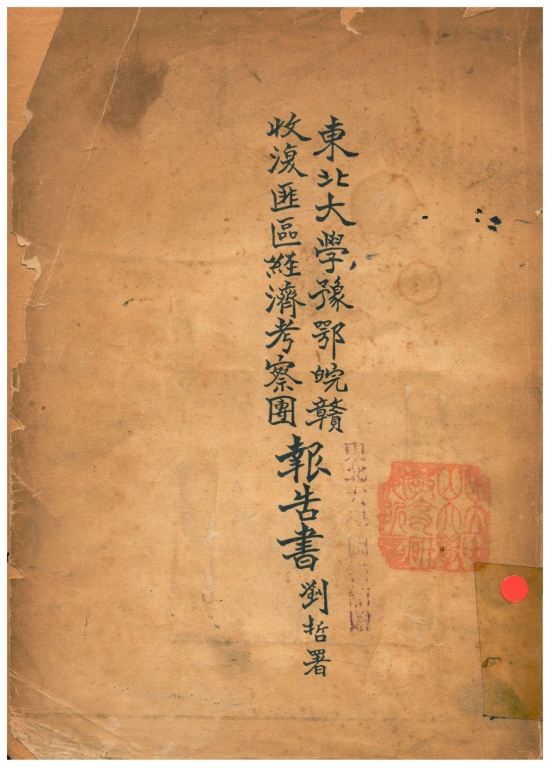 東北大學豫鄂皖贛
收復匪區経濟考察團
報告書
劉哲署